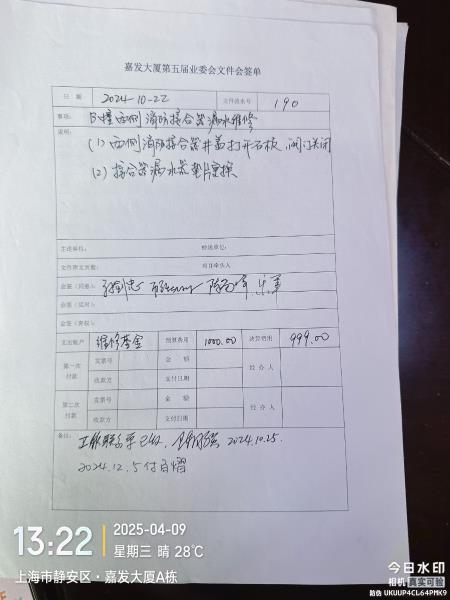 嘉发大厦第五届业委会文件会签单
日 期 2024-10-22 文件流水号 190
事项: B幢西侧消防接合器漏水维修
说明: (1) 西侧消防接合器井盖打开石板, 阀门关闭
(2) 接合器漏水 垫片重换
主送单位: 经送单位:
文件原文页数: 项目牵头人
会签(同意):
会签(反对):
会签(弃权):
支出账户 维修基金 预算费用 1000.00 决算费用 999.00
第一次付款 发票号 金 额 经 办 人
收款方 支付日期
第二次付款 发票号 金 额 经 办 人
收款方 支付日期
备注: 工作联系单已 2024.10.25.
2024.12.5 付
13:22 2025-04-09
星期三 晴 28℃
上海市静安区·嘉发大厦A栋
今日水印
相机 真实可验
防伪 UKUUP4CL64PMK9